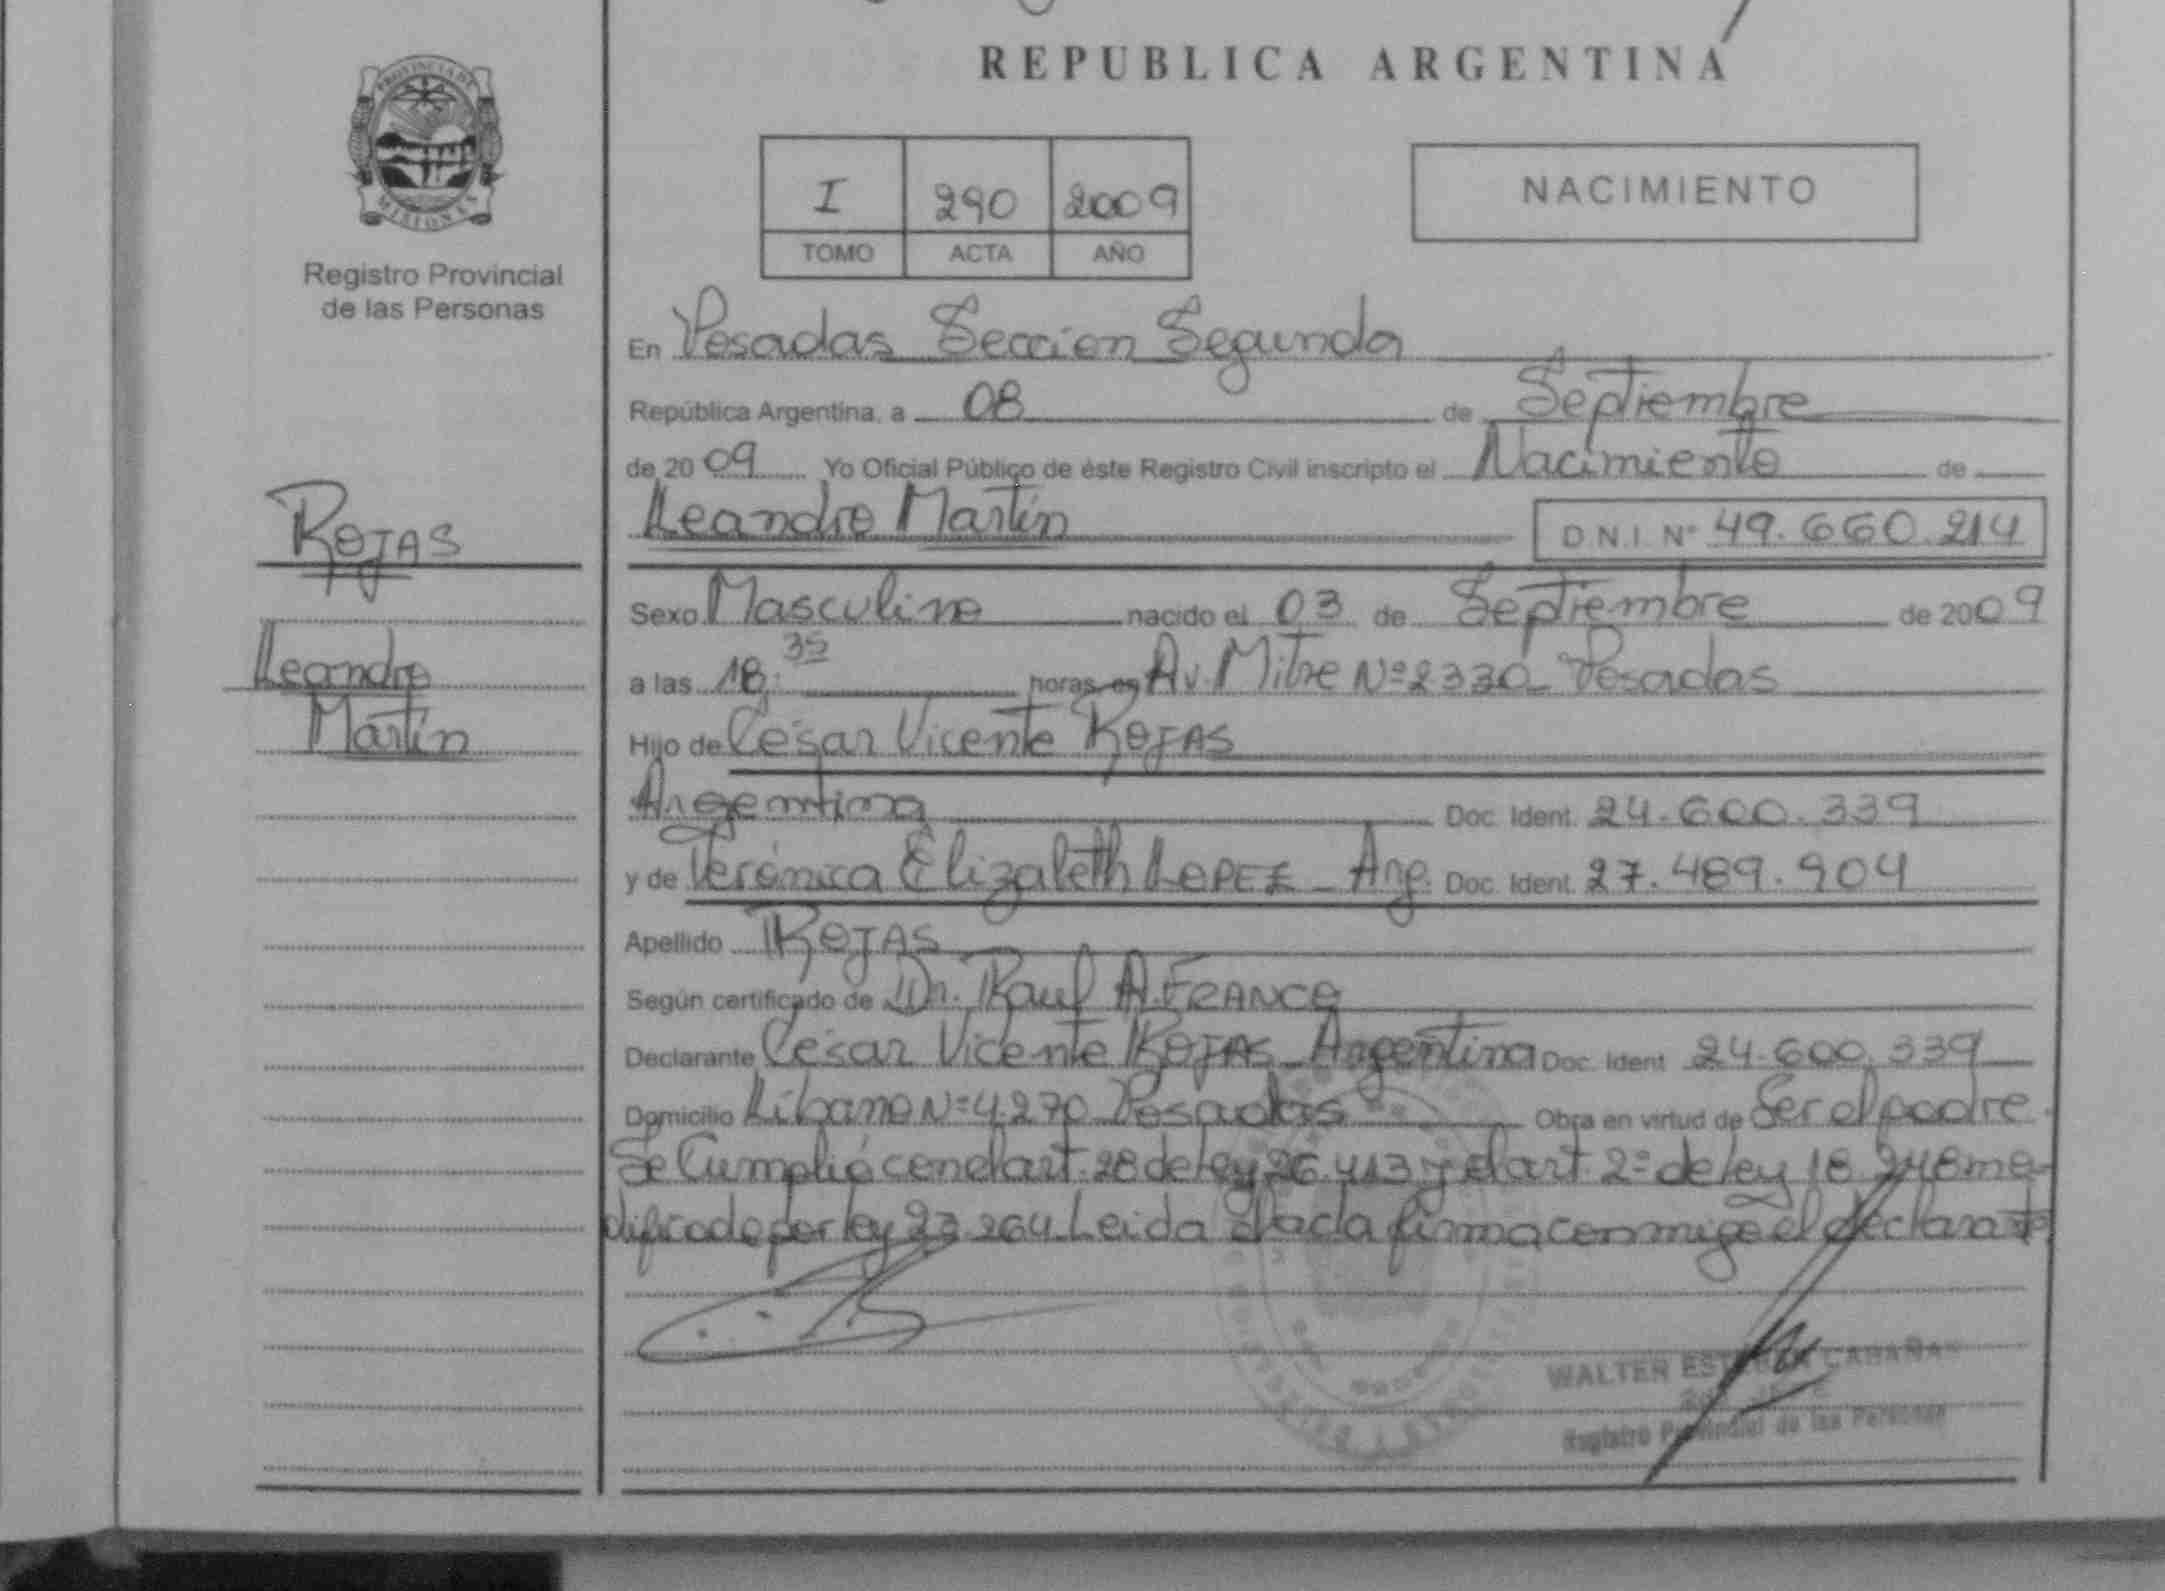 REPUBLICA ARGENTINA
PROVINCIA DE
MISIONES
Registro Provincial
de las Personas
I 290 2009
TOMO ACTA AÑO
NACIMIENTO
En Posadas Seccion Segunda
República Argentina, a 08 de Septiembre
de 20 09 Yo Oficial Público de éste Registro Civil inscripto el Nacimiento de
Leandro Martín
D.N.I. Nº 49.660.214
ROJAS
Leandro
Martín
Sexo Masculino nacido el 03 de Septiembre de 2009
a las 18:35 horas en Av. Mitre Nº 2330 Posadas
Hijo de César Vicente ROJAS
Argentina Doc. Ident. 24.600.339
y de Verónica Elizabeth LOPEZ - Arg. Doc. Ident. 27.489.904
Apellido ROJAS
Según certificado de Dr. Raul A. FRANCO
Declarante César Vicente ROJAS - Argentina Doc. Ident 24.600.339
Domicilio Líbano Nº 4.270 Posadas Obra en virtud de Ser el padre.
Se Cumplió con el art. 28 de ley 26.413 y el art. 2º de ley 18.248 mo-
dificado por ley 23.264. Leida el acta firma conmigo el declarante
WALTER CABAÑA
Registro Provincial de las Personas